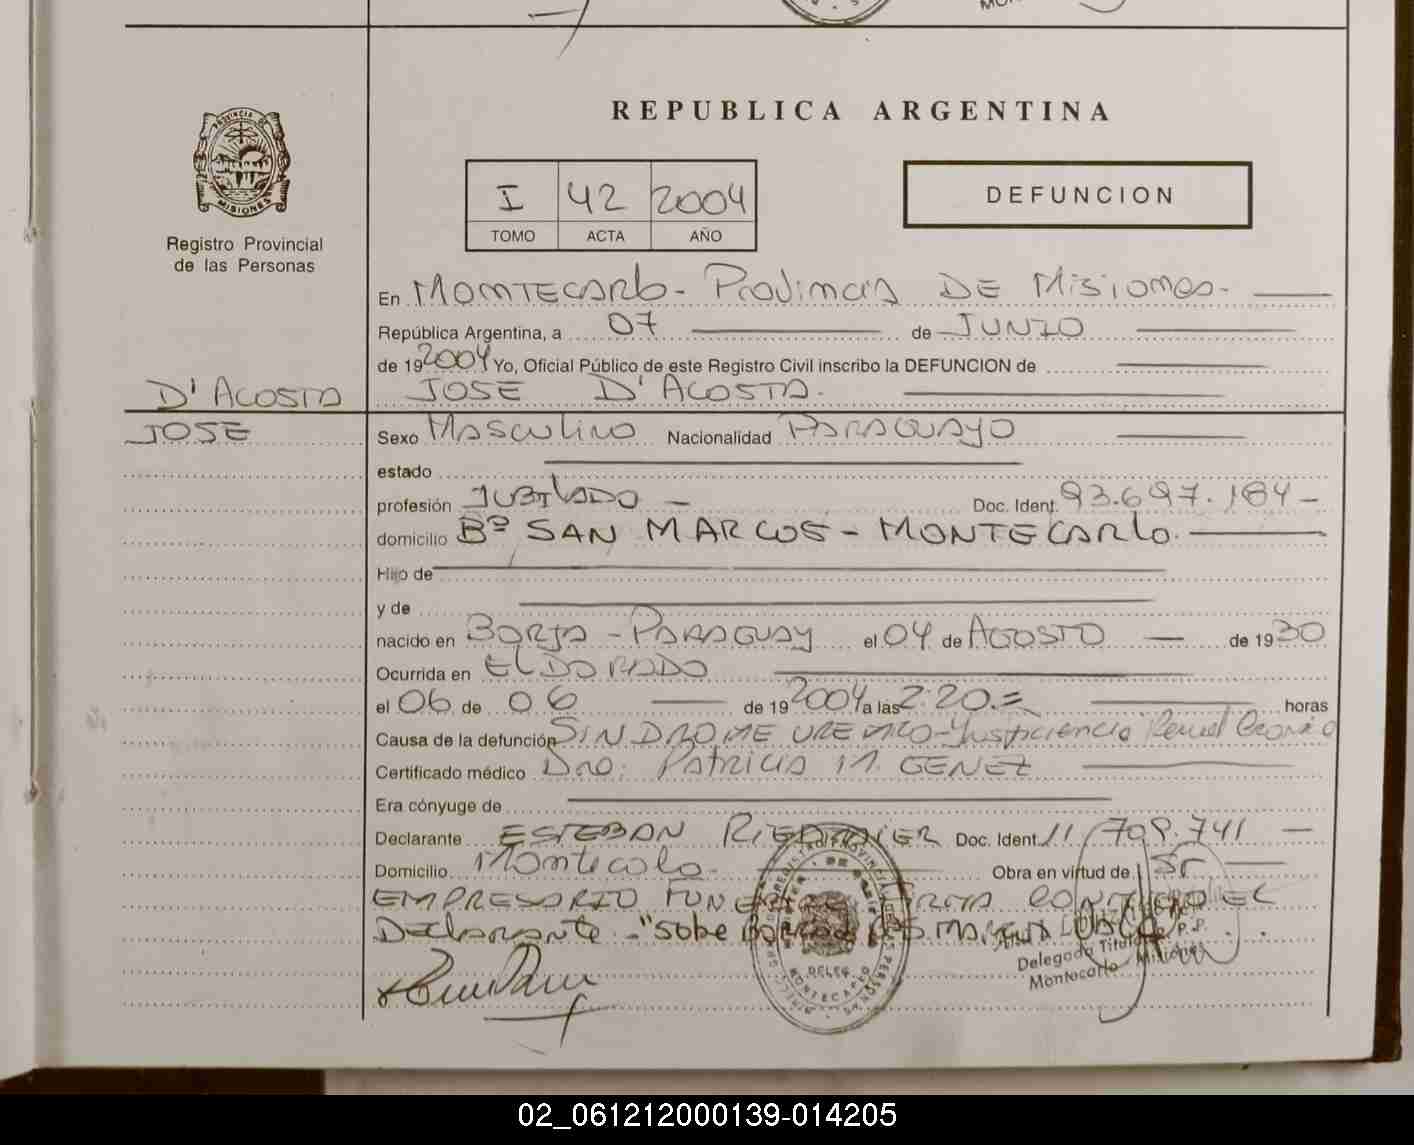 REPUBLICA ARGENTINA
PROVINCIA DE
MISIONES
Registro Provincial
de las Personas
I 42 2004
TOMO ACTA AÑO
DEFUNCION
En MONTECARLO - Provincia DE Misiones.
República Argentina, a 07 de JUNIO
de 192004 Yo, Oficial Público de este Registro Civil inscribo la DEFUNCION de
D'ACOSTA
JOSE D'ACOSTA.
JOSE
Sexo Masculino Nacionalidad PARAGUAYO
estado
profesión JUBILADO - Doc. Ident. 93.697.184 -
domicilio Bº SAN MARCOS - MONTECARLO.
Hijo de
y de
nacido en BORJA - PARAGUAY el 04 de AGOSTO de 1930
Ocurrida en ELDORADO
el 06 de 06 de 192004 a las 2:20.= horas
Causa de la defunción SINDROME UREMICO - Insuficiencia Renal Cronica
Certificado médico Dra. Patricia M. GENEZ
Era cónyuge de
Declarante ESTEBAN RIEDMAIER Doc. Ident. 11.709.741 -
Domicilio Montecarlo. Obra en virtud de Sr
EMPRESARIO FUNEBRE FIRMA CONMIGO EL
Declarante - "sobe
Delegada Titular
Montecarlo - Misiones
DELEG.
MONTECARLO
02_061212000139-014205